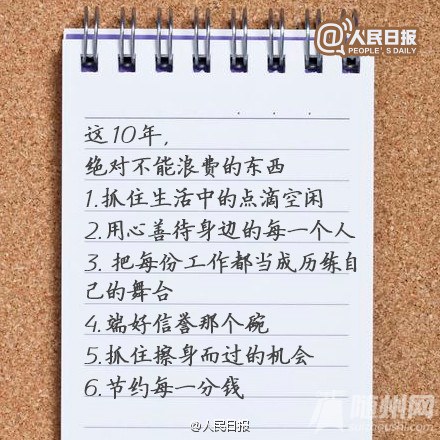 @人民日报
PEOPLE'S DAILY
这10年,
绝对不能浪费的东西
1.抓住生活中的点滴空闲
2.用心善待身边的每一个人
3. 把每份工作都当成历练自
己的舞台
4.端好信誉那个碗
5.抓住擦身而过的机会
6.节约每一分钱
随州网
@人民日报